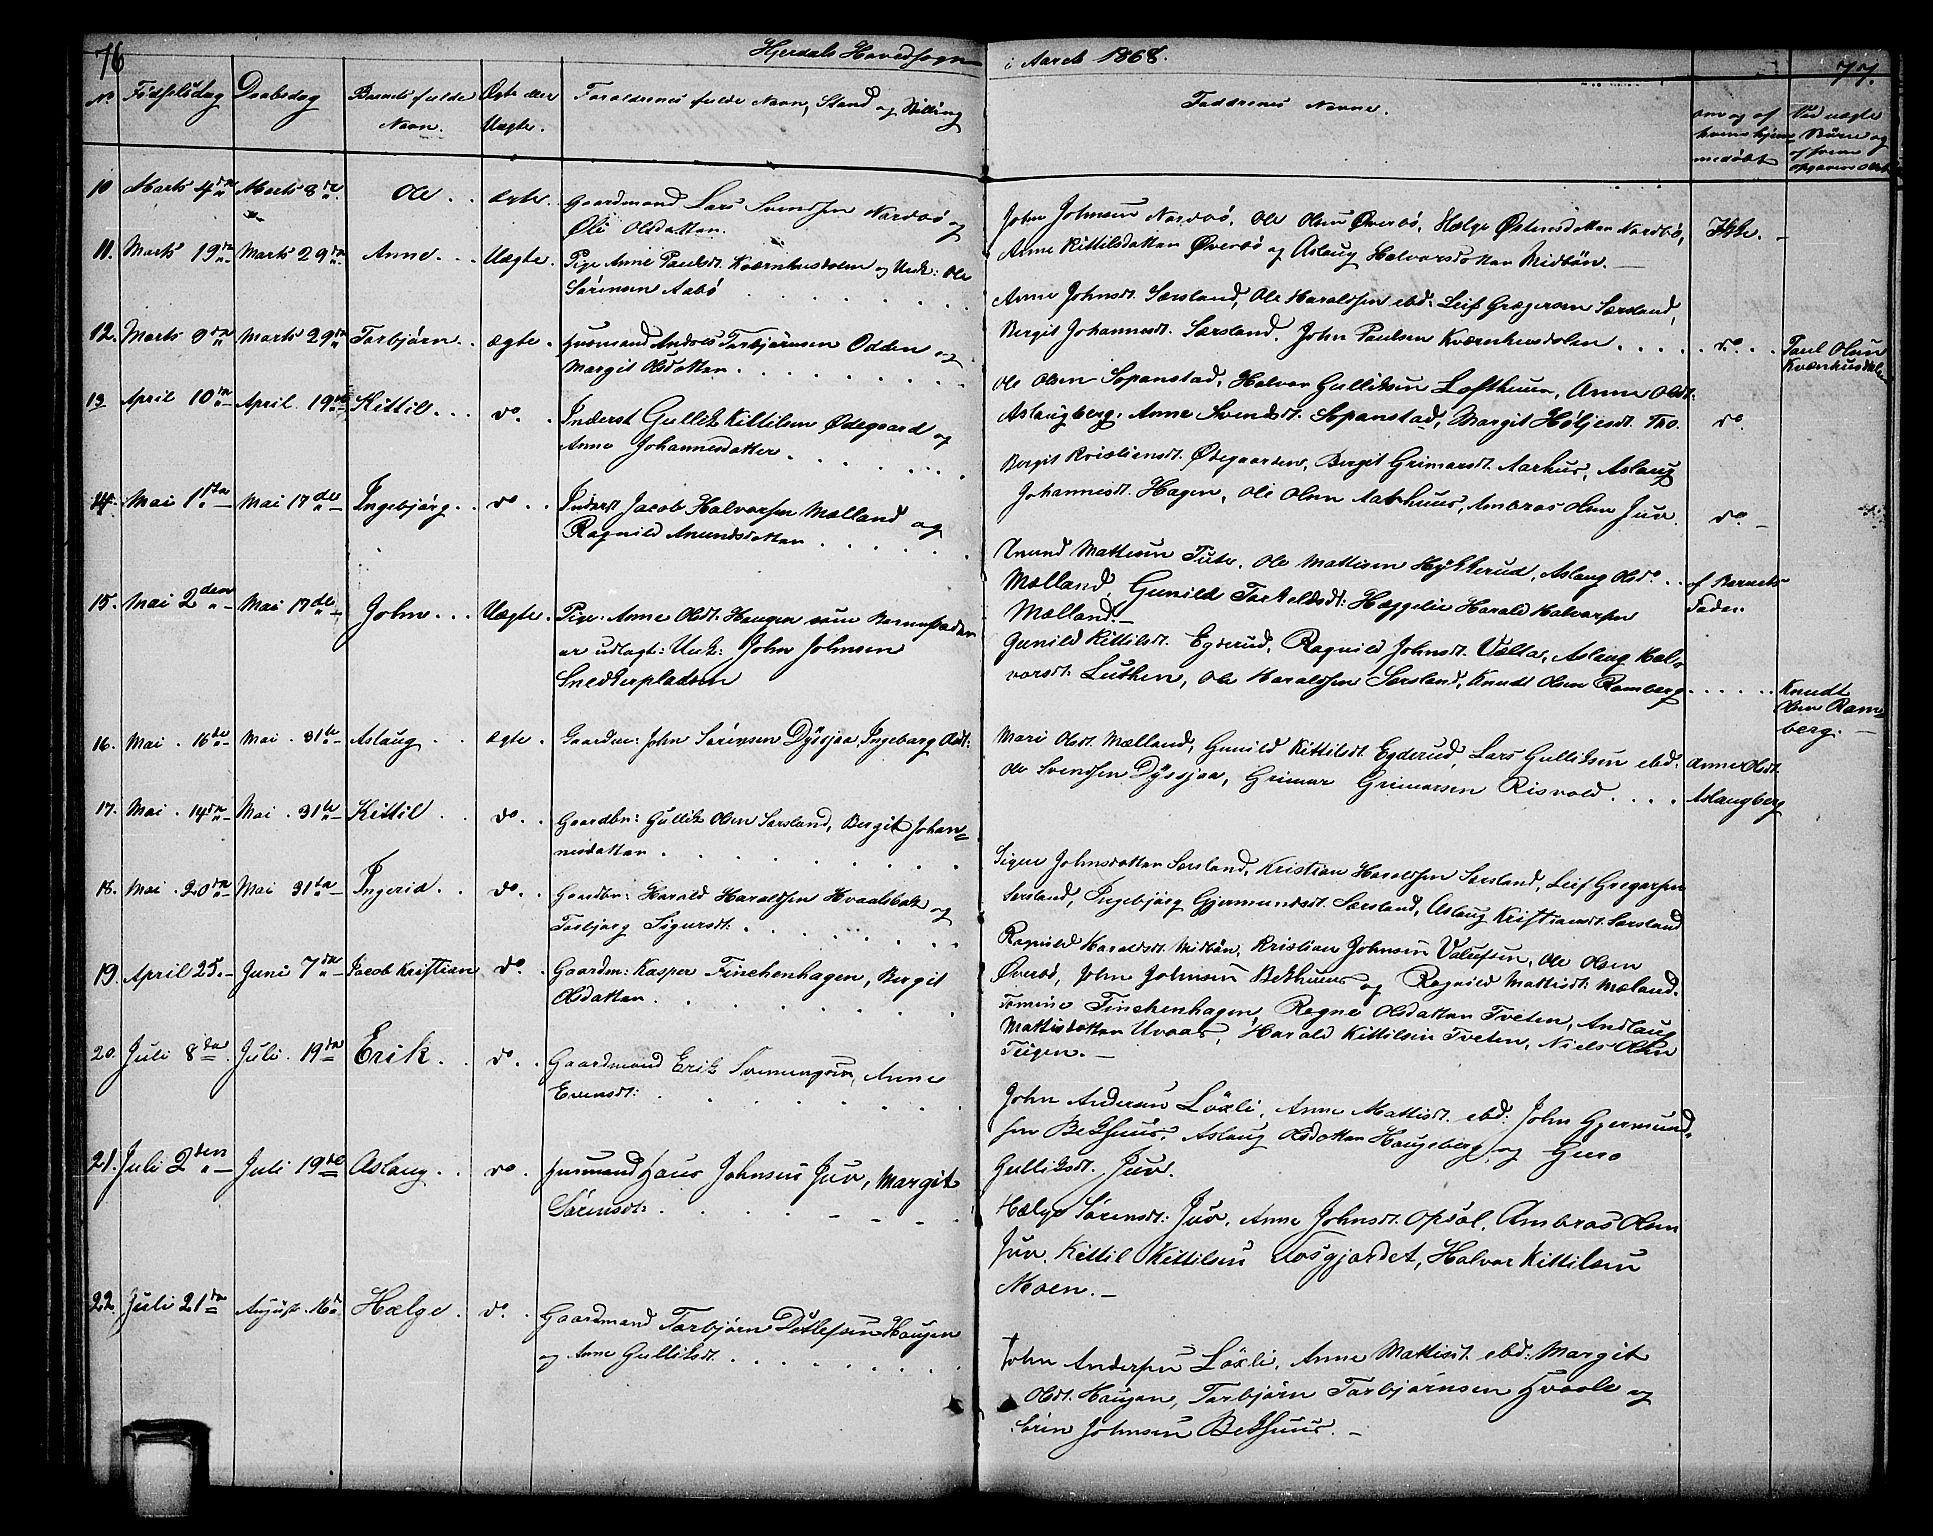 76 Hjerdals Hovedsogn i Aaret 1868. 77.
No Fødselsdag Daabsdag Barnets fulde Navn. Ægte eller Uægte. Forældrenes fulde Navn, Stand og Stilling Faddrenes Navne. om og af hvem hjemmedøbt Ved uægte Børn og af hvem
10 Marts 4de Marts 8de Ole ægte. Gaardmand Lars Svendsen Nordbø og
Øli Olsdatter.
John Johnsen Nordbø, Ole Olsen Øverbø, Hælge Østensdatter Nordbø, Ikke.
Anne Kittilsdatter Øverbø og Aslaug Halvorsdatter Midbøn.
11. Marts 19de Marts 29de Anne Uægte. Pige Anne Paulsdt. Kværnhusdalen og Unk: Ole
Sørensen Aabø
Anne Johnsdt. Sørsland, Ole Haraldsen ebd. Leif Grægersen Sørsland,
Bergit Johannesdt. Sørsland. John Paulsen Kværnhusdalen do. Paul Olsen
Kværnhusdalen
12. Marts 9de Marts 29de Torbjørn ægte. Husmand Andres Torbjørnsen Odden og
Margit Olsdatter
Ole Olsen Sopanstad, Halvor Gulliksen Lofthuus, Anne Olsdt.
Aslaugberg, Anne Svendsdt. Sopanstad, Margit Høljesdt. Tho. do.
13 April 10de April 19de Kittil do. Inderst Gullik Kittilsen Ødegaard og
Anne Johannesdatter
Bergit Kristiensdt. Ødegaarden, Bergit Grimarsdt. Aarhus, Aslaug
Johannesdt. Hagen, Ole Olsen Aarhuus, Ambros Olsen Juv. do.
14. Mai 1ste Mai 17de Ingebjørg do. Inderst Jacob Halvorsen Mælland og
Ragnild Anundsdatter
Anund Mattisen Tute, Ole Mattisen Hykkerud, Aslaug Olsd. af Barnets
Mælland, Gunild Torkelsdt. Hæggelie Harald Halvorsen Fader.
Mælland.
15. Mai 2den Mai 17de John Uægte. Pige: Anne Olsdt. Haugen som Barnefader
er udlagt: Unk: John Johnsen
Snedkerpladsen
Gunild Kittilsdt. Egderud, Ragnild Johnsdt. Vælta, Aslaug Hal-
vorsdt. Luthen, Ole Haraldsen Sørsland, Knudt Olsen Ramberg Knudt
Olsen Ram=
berg.
16. Mai 16de Mai 31te Aslaug ægte. Gaardm: John Sørensen Dyssjaa, Ingeborg Olsdt:
Mari Olsdt. Mælland, Gunild Kittilsdt. Egderud, Lars Gulliksen ebd. Anne Olsdt.
Ole Svendsen Dyssjaa, Grimar Grimarsen Risvold Aslaugberg
17. Mai 14de Mai 31te Kittil do. Gaardbr: Gullik Olsen Sørsland, Bergit Johan=
nesdatter
Signe Johnsdatter Sørsland, Kristian Haraldsen Sørsland, Leif Gregersen
Sørsland, Ingebjørg Gjermundsdt. Sørsland, Aslaug Kristiansdt. Sørsland
18. Mai 20de Mai 31te Ingerid do. Gaardbr: Harald Haraldsen Hvaalsbak og
Torbjørg Sigursdt:
Ragnild Haraldsdt. Midbøn, Kristian Johnsen Valufsen, Ole Olsen
Øverbø, John Johnsen Bekhuus og Ragnild Mattisdt. Mæland.
19. April 25 Juni 7de Jacob Kristian do. Gaardm: Kasper Finchenhagen, Bergit
Olsdatter
Tomine Finchenhagen, Ragne Olsdatter Tveten, Andlaug
Mattisdatter Uvaas, Harald Kittilsen Tveten, Niels Olsen
Teigen.
20. Juli 8de Juli 19de Erik do. Gaardmand Erik Svenungsen, Anne
Evensdt:
John Andersen Løxli, Anne Mattisdt. ebd: John Gjermund-
sen Bekhuus, Aslaug Olsdatter Haugeberg og Guro
Gulliksdt. Juv.
21. Juli 2den Juli 19de Aslaug do. Husmand Hans Johnsen Juv, Margit
Sørensdt:
Hælge Sørensdt: Juv, Anne Johnsdt. Opsal, Ambros Olsen
Juv, Kittil Kittilsen Aasgjordet, Halvor Kittilsen
Moen.
22. Juli 21de August 16de Hælge do. Gaardmand Torbjørn Detlefsen Haugen
og Anne Gulliksdt.
John Andersen Løxli, Anne Mattisdt. ebd: Margit
Olsdt. Haugen, Torbjørn Torbjørnsen Hvaale og
Sørin Johnsen Bekhuus.